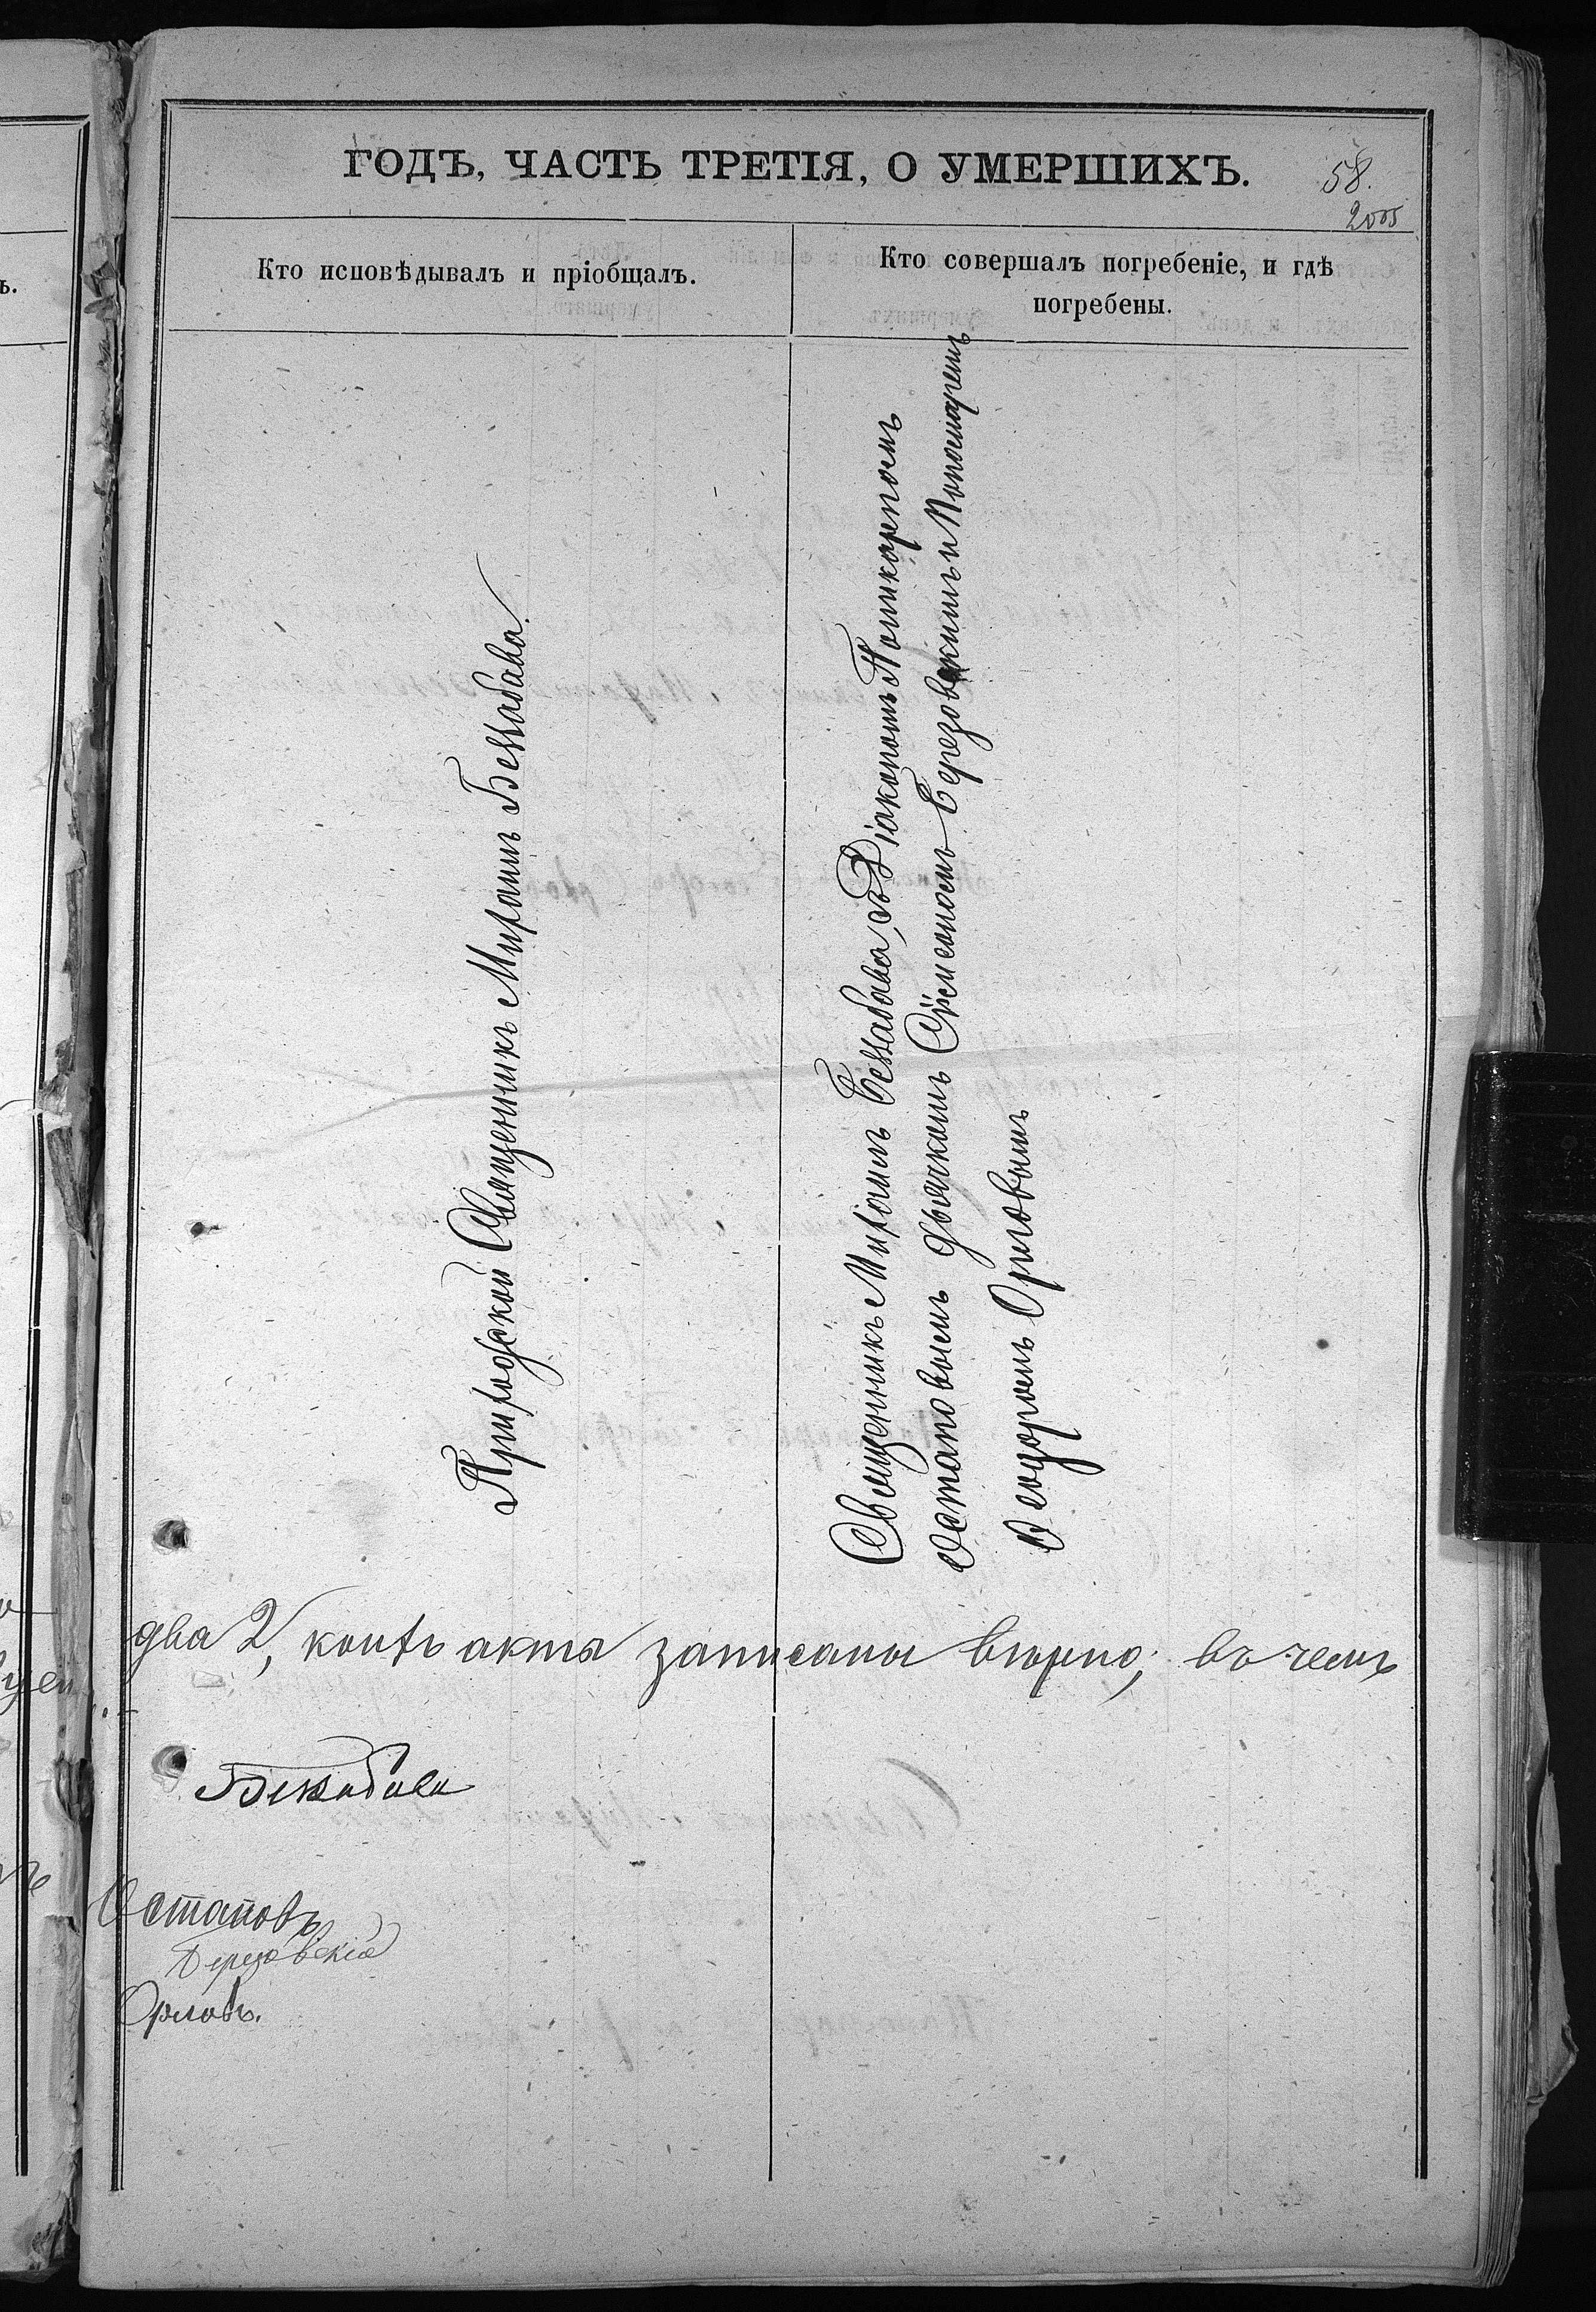 ГОДЪ, ЧАСТЬ ТРЕТІЯ, О УМЕРШИХЪ.
58.
Кто исповѣдывалъ и пріобщалъ.
Кто совершалъ погребеніе, и гдѣ
погребены.
Приходской Священникъ Михаилъ Беззабава.
Священникъ Михаилъ Беззабава, съ Діакономъ Поликарпомъ
Остаповымъ дьячкомъ Сѵмеономъ Березовскимъ и Пономаремъ
Ѳеодоромъ Орловымъ
два 2, коихъ акты записаны вѣрно; въ чемъ
Беззабава
Остаповъ
Березовскій
Орловъ.